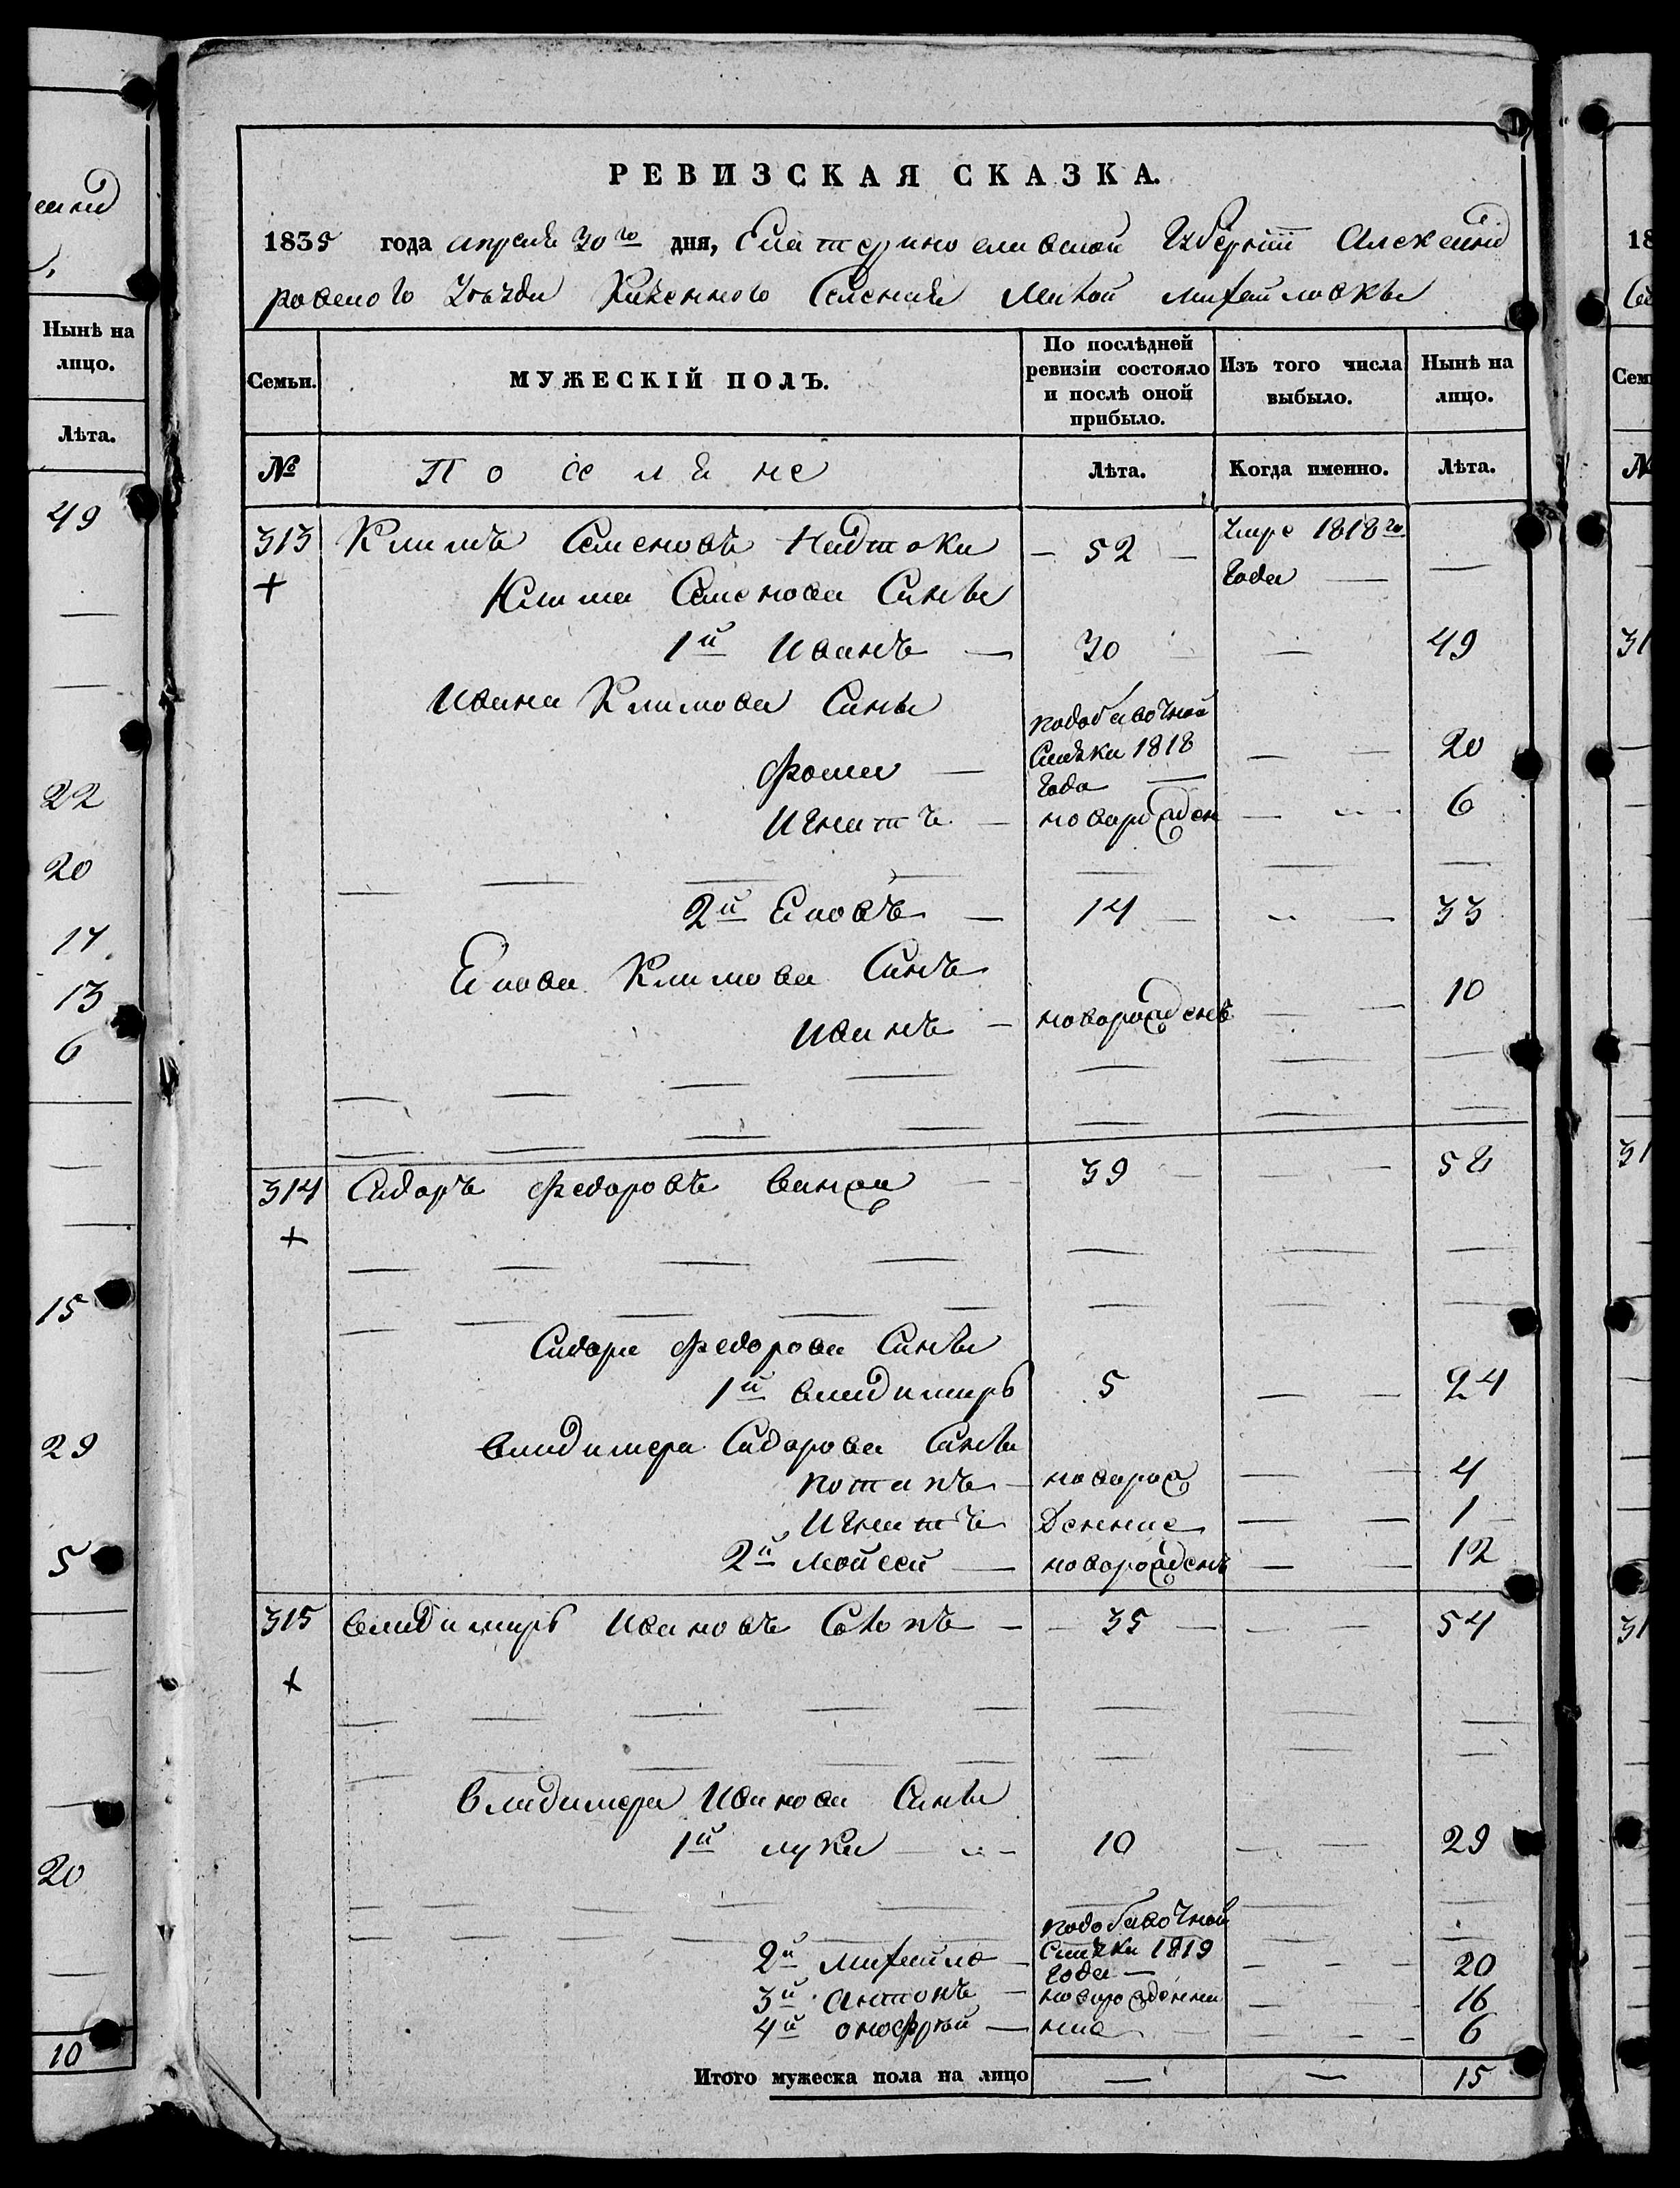 РЕВИЗСКАЯ СКАЗКА.
1835 года апреля 30го дня, Екатеринославской Губернiи Александ
ровского Уезда Казенного Селения Михайловки
Семьи. МУЖЕСКІЙ ПОЛЪ. По послѣдней ревизіи состояло и послѣ оной прибыло. Изъ того числа выбыло. Нынѣ на лицо.
№ Поселяне Лѣта. Когда именно. Лѣта.
313 Климъ Семеновъ Надтока — 52 — умре 1818го года —
+ Клима Семенова Сины
1й Иванъ — 30 — 49
Ивана Климова Сины
Фома — подобавочной Скаски 1818 года — 20
Игнатъ — новорожден — 6
2й Еповъ — 14 — 33
Епова Климова Синъ
Иванъ — новорожденъ — 10
314 Сидоръ Федоровъ Ванжа — 39 — 58
+
Сидора Федорова Сины
1й Владимиръ 5 — 24
Владимера Сидорова Сины
Потапъ — новорож — 4
Игнатъ денние — 1
2й Мойсей — новорожденъ — 12
315 Владимиръ Ивановъ — 35 — 54
+
Владимера Иванова Сины
1й Лука — 10 — 29
2й Михайло — подобавочной Скаски 1819 года — 20
3й Антонъ — новорожденни — 16
4й Онофрий — ние — 6
Итого мужеска пола на лицо — — 15
Нынѣ на
лицо.
Лѣта.
49
22
20
17
13
6
15
29
5
20
10
18
Сем
№
31
31
31